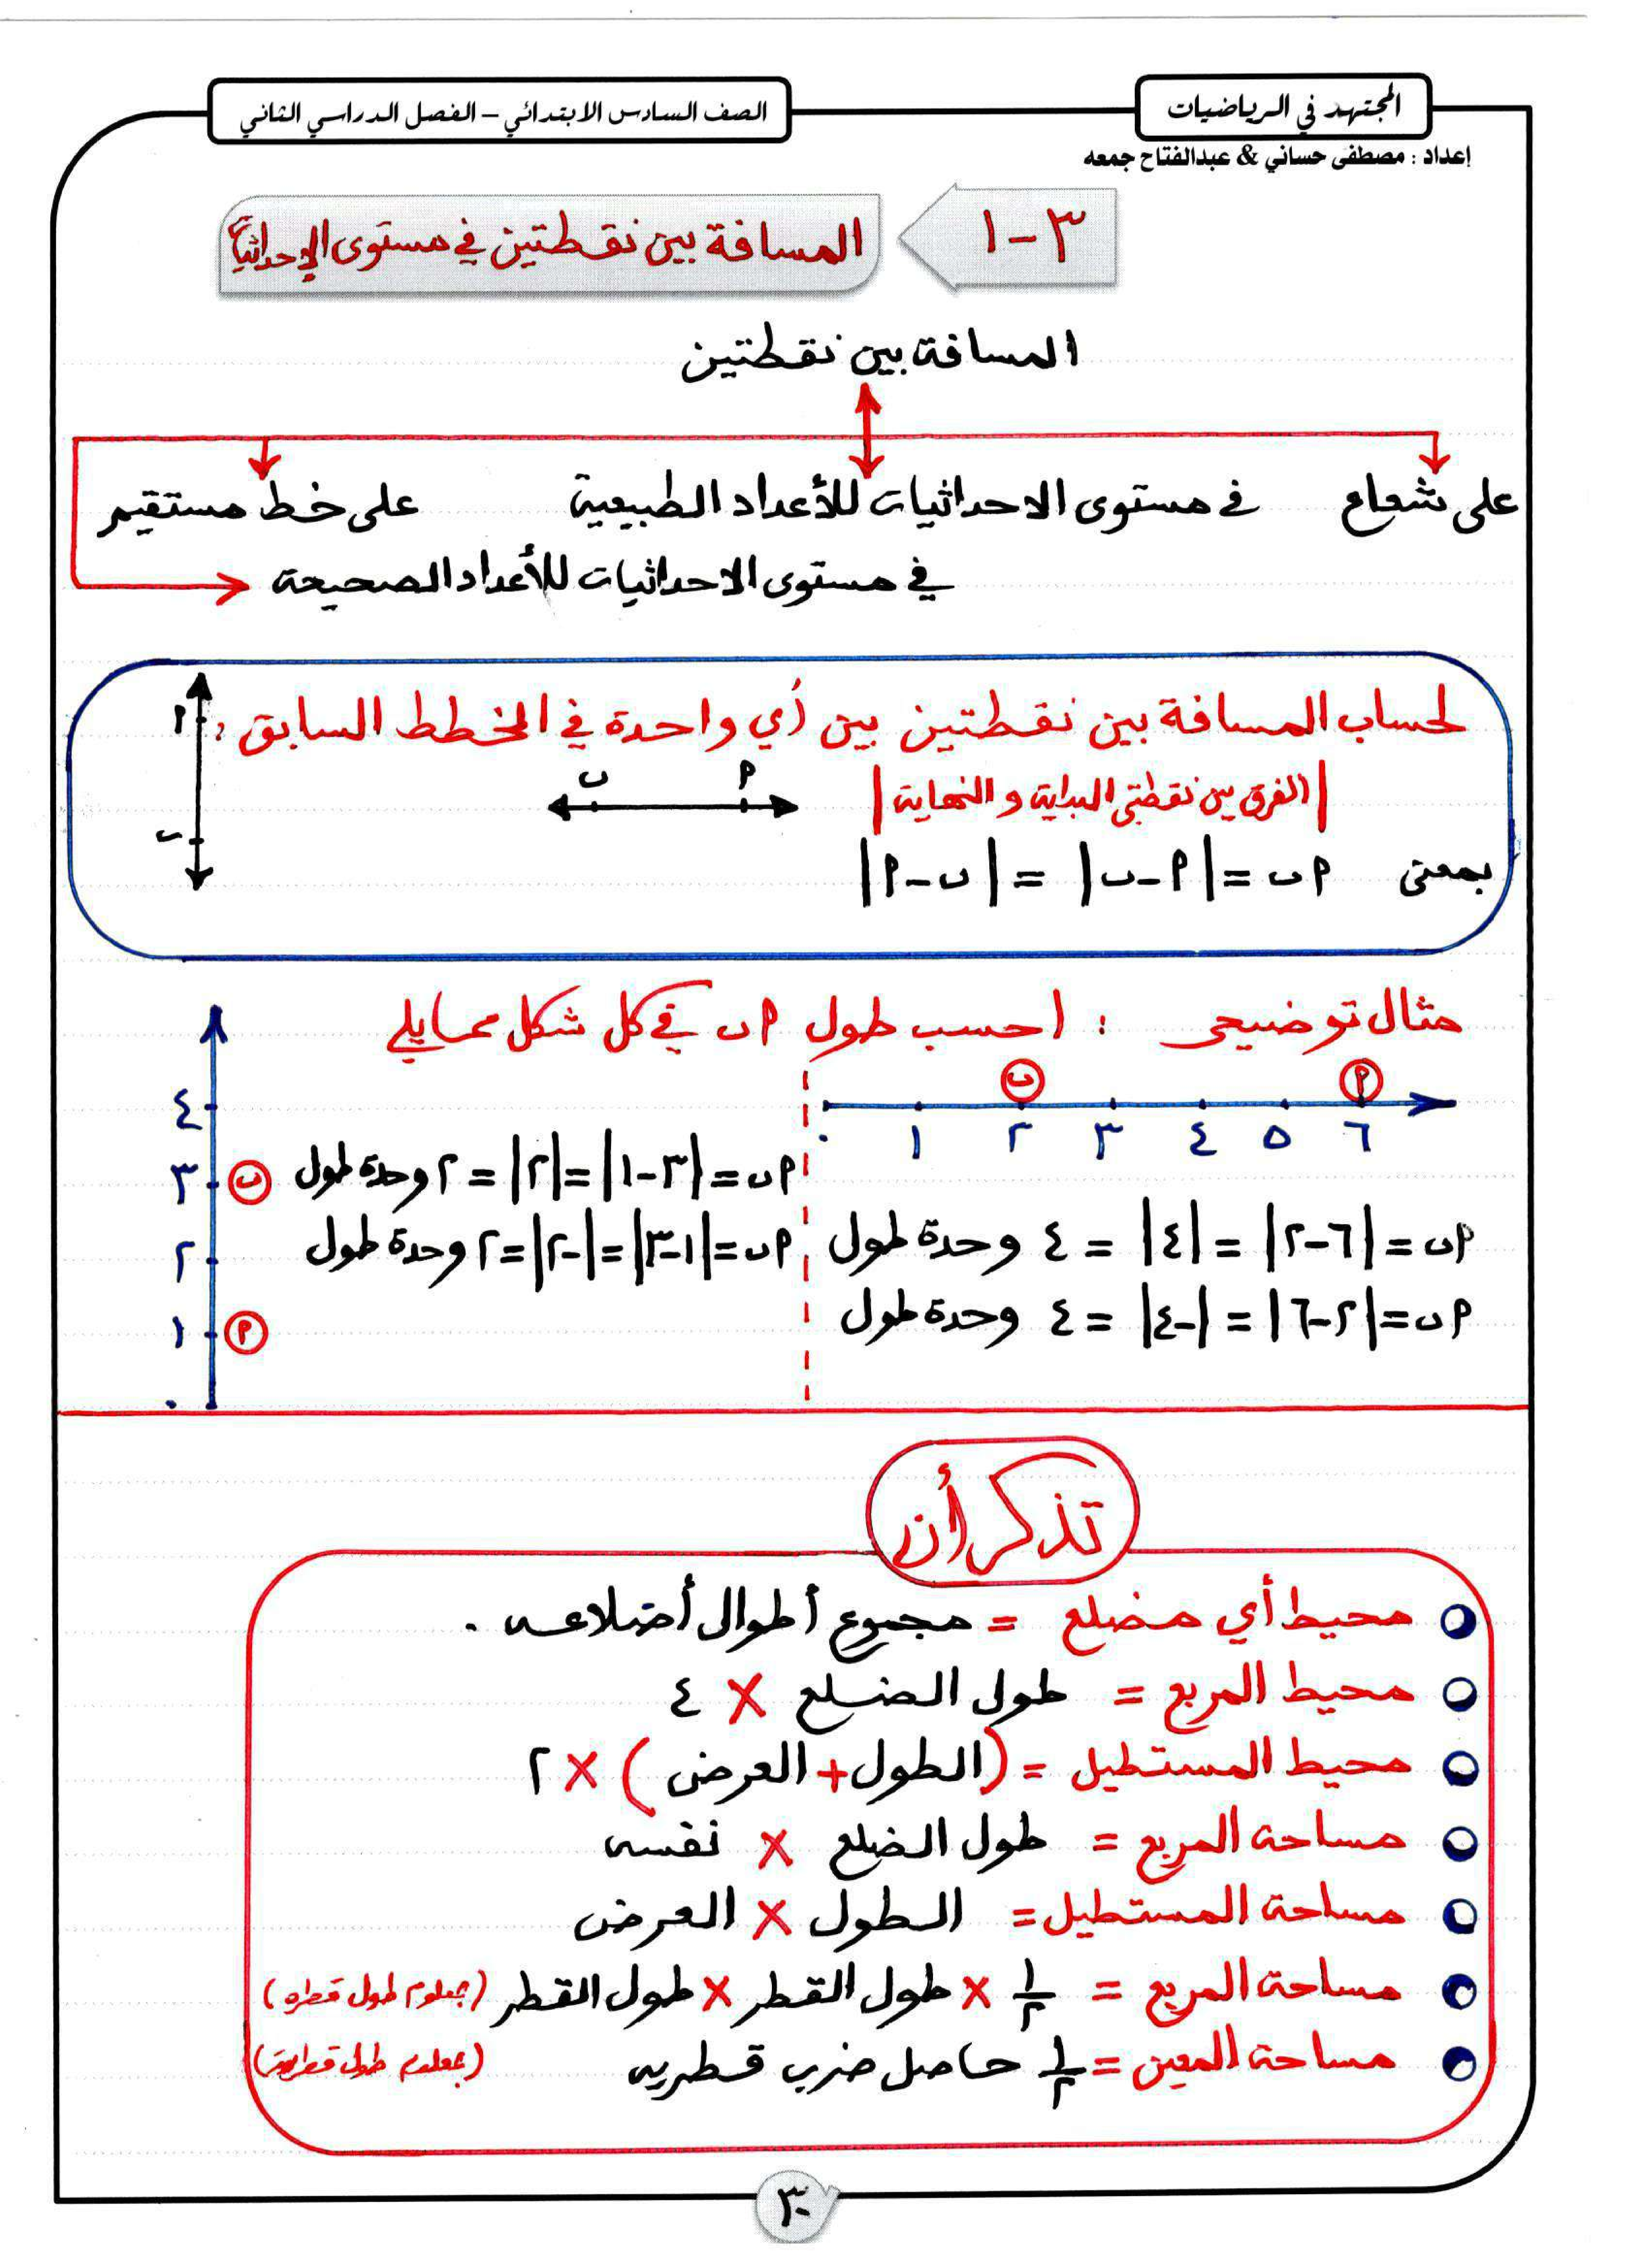 المجتهد في الرياضيات
الصف السادس الابتدائي – الفصل الدراسي الثاني
إعداد : مصطفى حساني & عبدالفتاح جمعه
٣ - ١
المسافة بين نقطتين في مستوى الإحداثيات
المسافة بين نقطتين
على شعاع
في مستوى الاحداثيات للأعداد الطبيعية
على خط مستقيم
في مستوى الاحداثيات للأعداد الصحيحة
لحساب المسافة بين نقطتين بين أي واحدة في المخطط السابق :
|الفرق بين نقطتي البداية و النهاية|
ب م
م
ب
بمعنى م ب = |م - ب| = |ب - م|
مثال توضيحي : احسب طول م ب في كل شكل مما يلي
ب م
٠ ١ ٢ ٣ ٤ ٥ ٦
م ب = |٦ - ٢| = |٤| = ٤ وحدة طول
م ب = |٢ - ٦| = |-٤| = ٤ وحدة طول
م ب = |٣ - ١| = |٢| = ٢ وحدة طول
م ب = |١ - ٣| = |-٢| = ٢ وحدة طول
٤
٣ ب
٢
١ م
٠
تذكر أن
محيط أي مضلع = مجموع أطوال أضلاعه .
محيط المربع = طول الضلع × ٤
محيط المستطيل = (الطول + العرض) × ٢
مساحة المربع = طول الضلع × نفسه
مساحة المستطيل = الطول × العرض
مساحة المربع = ١/٢ × طول القطر × طول القطر (بمعلوم طول قطره)
مساحة المعين = ١/٢ حاصل ضرب قطريه (بمعلوم طول قطريه)
٣٠